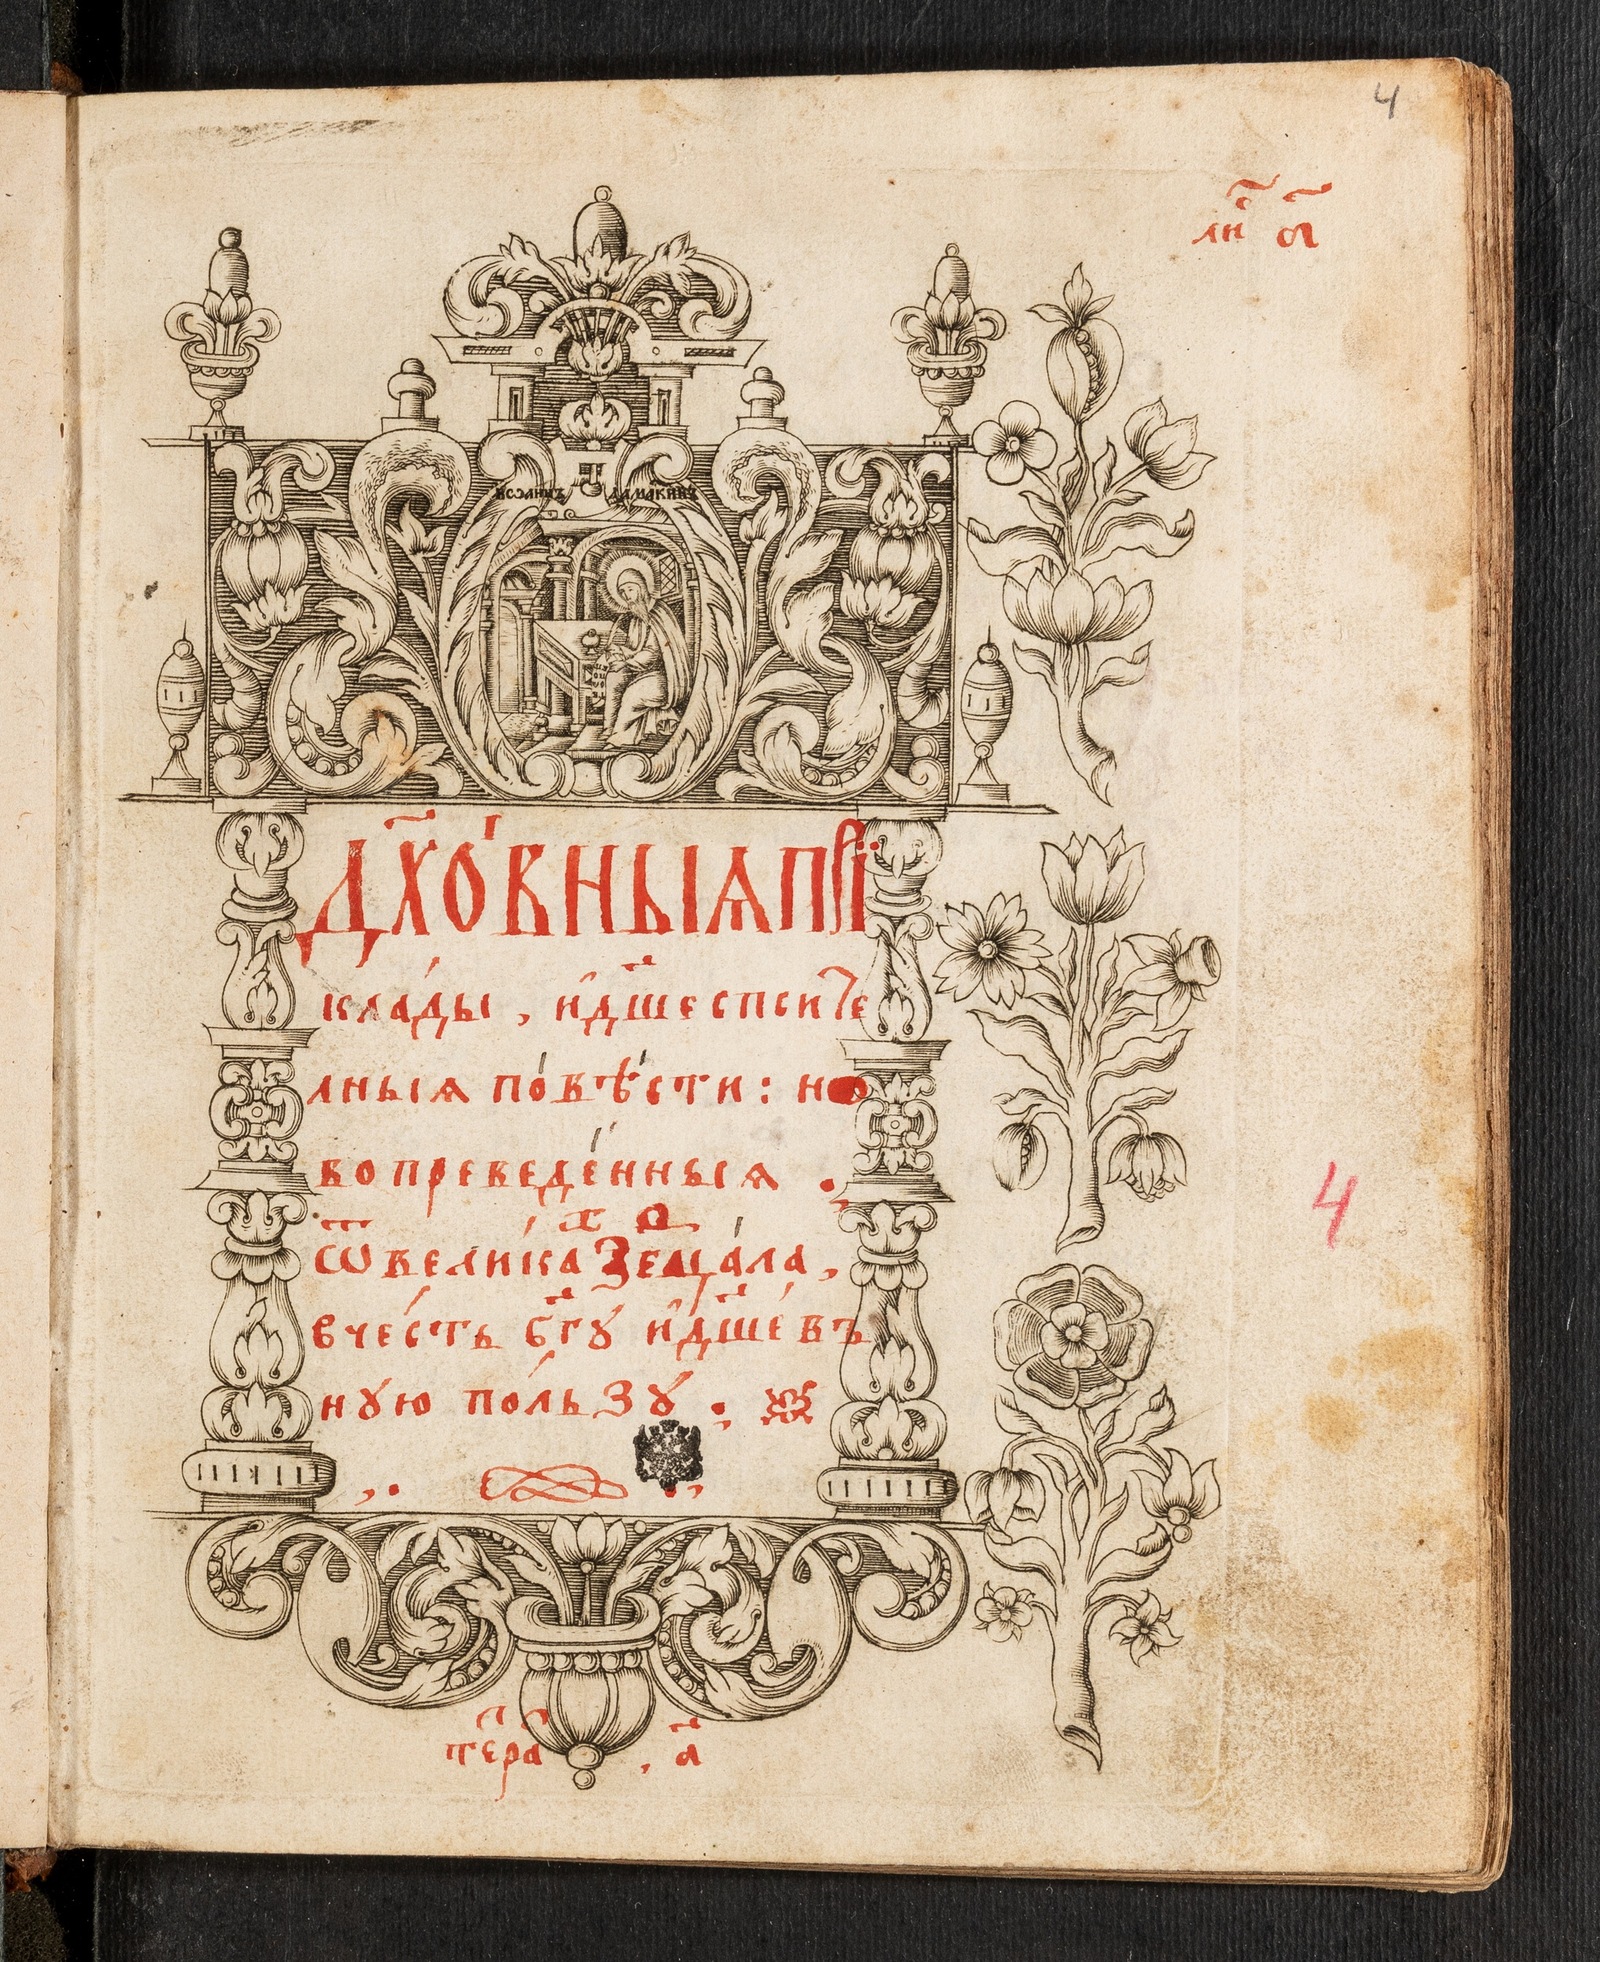 4
ли҃ а҃
їѡаннъ дамаскинъ
Дх҃о́вныѧ при
кла́ды , и҆дш҃еспси́те
лныѧ по́вѣ́сти : но
во преведе́нныѧ .
ѿ вели́ка Зерца́ла ,
в че́сть бг҃ꙋ и҆дш҃е́въ
нꙋю по́льзꙋ .
4
тетра , а҃